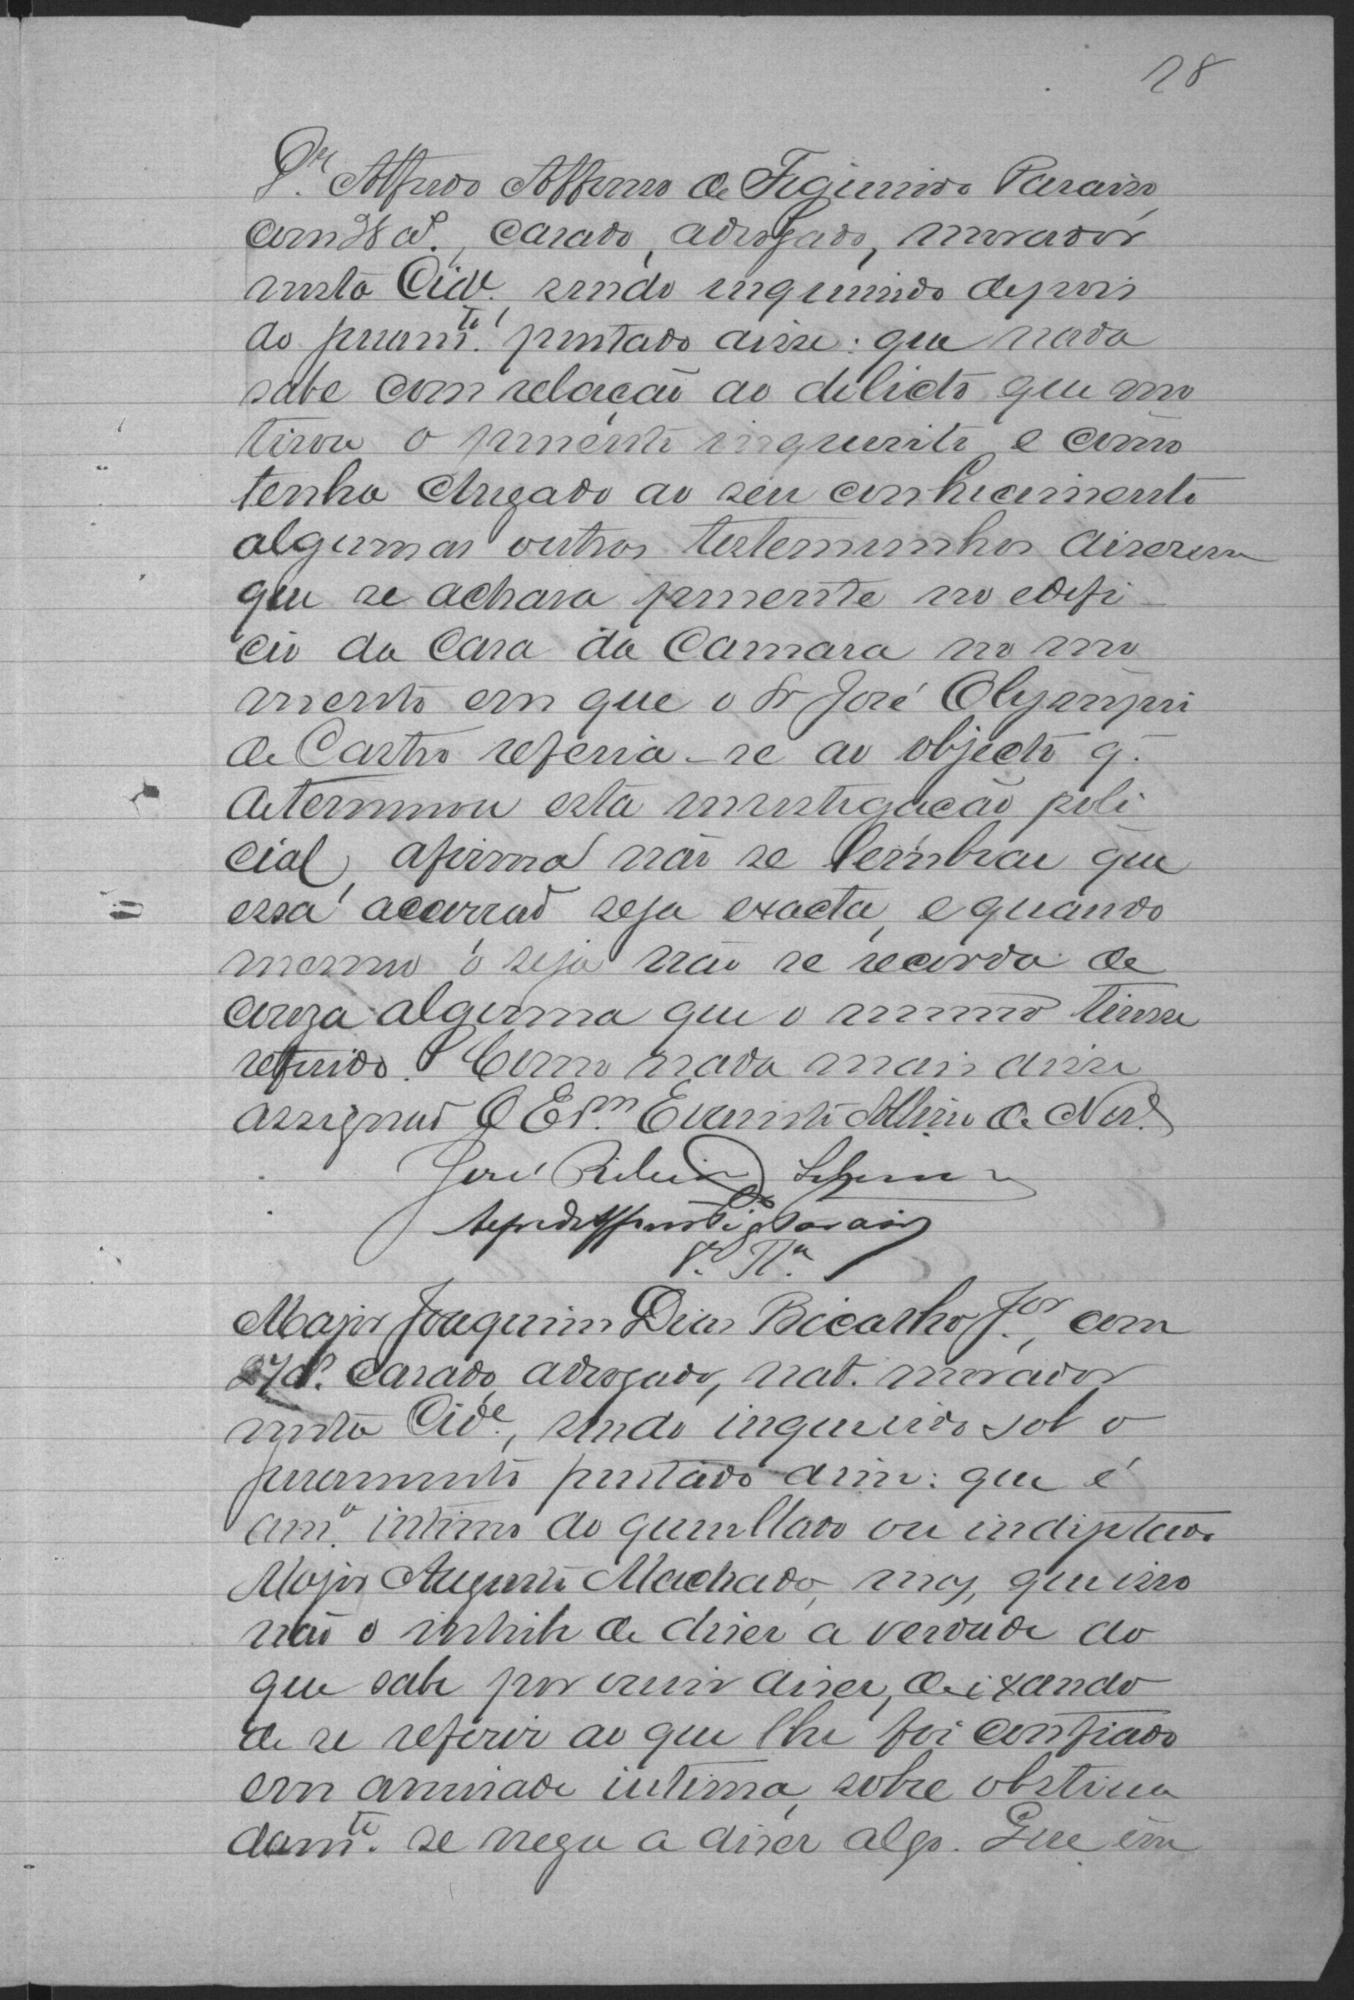 18
Dr. Alfredo Affonso de Figueiredo Paraiso
com 38 as., casado, advogado, morador
nesta Cide. sendo inquirido depois
do juramto. prestado disse: que nada
sabe com relação ao delicto que mo
tivou o presente inquerito e como
tenha chegado ao seu conhecimento
algumas outras testemunhas disserem
que se achava presente no edifi-
cio da Casa da Camara no mo
mento em que o Sr José Olympio
de Castro referia-se ao objecto q.
determinou esta investigação poli
cial, afirma não se lembrar que
essa accusação seja exacta, e quando
mesmo o seja não se recorda de
couza alguma que o mesmo tivesse
referido. Como nada mais disse
assignão O Esm. Evaristo de
José Ribeiro
Alfredo Affonso Fig Paraiso
8a. Ta.
Major Joaquim Dias Bicalho Jor., com
37 as. casado, advogado, nat. morador
nesta Cide., sendo inquerido sob o
juramento prestado disse: que é
amo. intimo do querellado ou indiciado
Major Augusto Machado, mas, que isso
não o inhibe de diser a verdade do
que sabe por ouvir diser, deixando
de se referir ao que lhe foi confiado
em amisade intima, sobre obstina
damte. se nega a diser algo. Que em